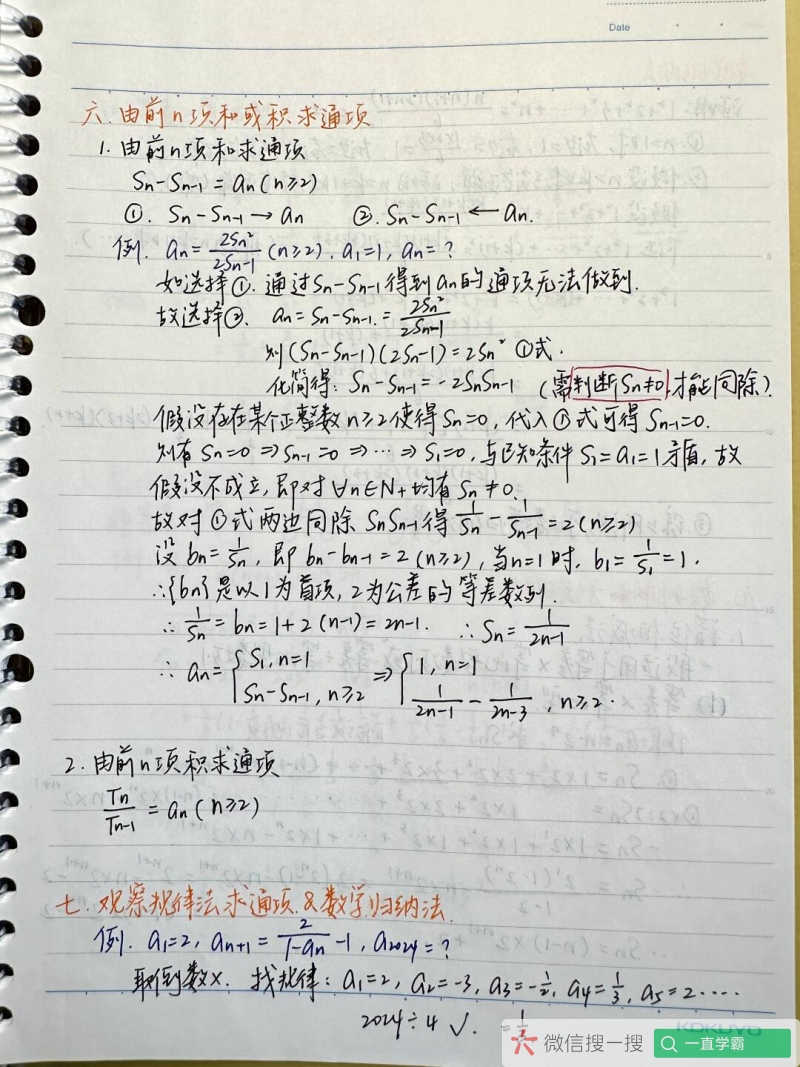 Date
六.由前n项和或积求通项
1.由前n项和求通项
Sn-Sn-1=an(n≥2)
①. Sn-Sn-1→an ②.Sn-Sn-1←an.
例. an=2Sn²/2Sn-1(n≥2). a1=1, an=?
如选择①.通过Sn-Sn-1得到an的通项无法做到.
故选择②. an=Sn-Sn-1.=2Sn²/2Sn-1
则(Sn-Sn-1)(2Sn-1)=2Sn² ①式.
化简得: Sn-Sn-1=-2SnSn-1 (需判断Sn≠0.才能同除).
假设存在某个正整数n≥2使得Sn=0,代入①式可得Sn-1=0.
则有Sn=0⇒Sn-1=0⇒…⇒S1=0,与已知条件S1=a1=1矛盾,故
假设不成立,即对∀n∈N+均有Sn≠0.
故对①式两边同除SnSn-1得1/Sn-1/Sn-1=2(n≥2)
设bn=1/Sn,即bn-bn-1=2(n≥2),当n=1时, b1=1/S1=1.
∴{bn}是以1为首项,2为公差的等差数列.
∴1/Sn=bn=1+2(n-1)=2n-1. ∴Sn=1/2n-1
∴ an={S1, n=1 ⇒{1, n=1
Sn-Sn-1, n≥2 1/2n-1-1/2n-3, n≥2.
2.由前n项积求通项
Tn/Tn-1=an(n≥2)
七.观察规律法求通项&数学归纳法.
例. a1=2, an+1=2/1-an-1, a2024=?
取倒数×. 找规律: a1=2, a2=-3, a3=-1/2, a4=1/3, a5=2····
2024÷4 √. =1/3
微信搜一搜
一直学霸
KOKUYO